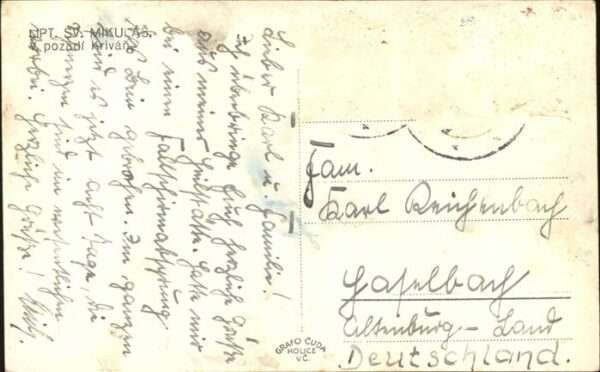 LIPT. SV. MIKULÁŠ.
v pozadí Kriváň
Lieber Karl u. Familie!
Ich überbringe Euch herzliche Grüße
aus meiner Heilstätte. Habe mir
bei einem Fallschirmabsprung
das Bein gebrochen. Im ganzen
sind es jetzt acht Tage, die
im
herzliche Grüße!
Fam.
Karl Reichenbach
Haselbach
Altenburg - Land
Deutschland.
GRAFO ČUDA
HOLICE
V.Č.